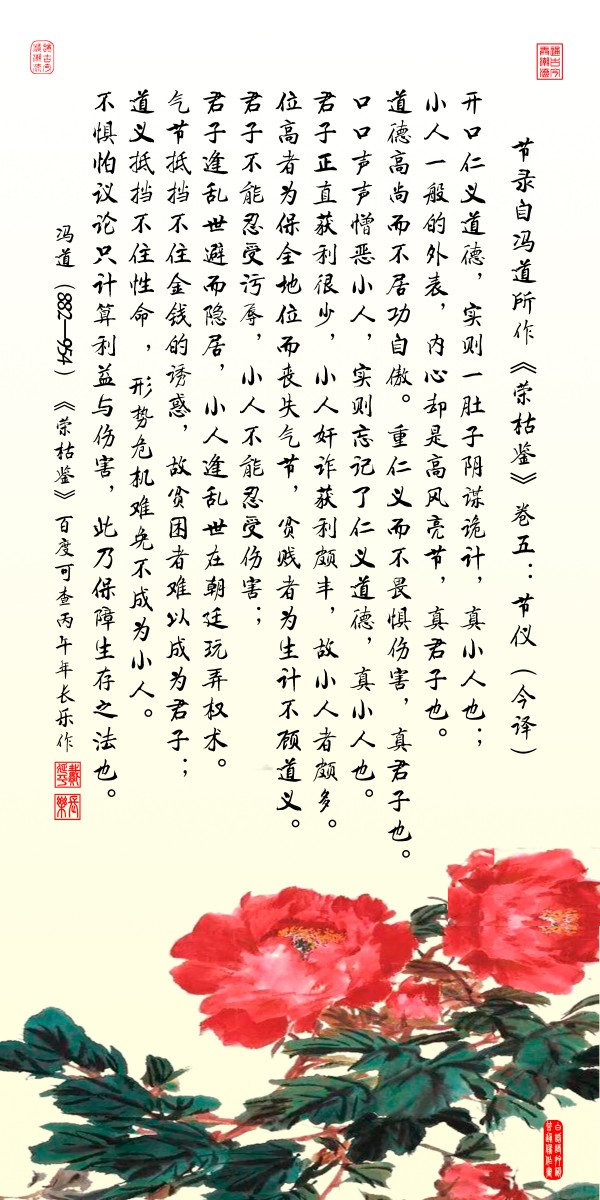 节录自冯道所作《荣枯鉴》卷五：节仪（今译）
开口仁义道德，实则一肚子阴谋诡计，真小人也；
小人一般的外表，内心却是高风亮节，真君子也。
道德高尚而不居功自傲。重仁义而不畏惧伤害，真君子也。
口口声声憎恶小人，实则忘记了仁义道德，真小人也。
君子正直获利很少，小人奸诈获利颇丰，故小人者颇多。
位高者为保全地位而丧失气节，贫贱者为生计不顾道义。
君子不能忍受污辱，小人不能忍受伤害；
君子逢乱世避而隐居，小人逢乱世在朝廷玩弄权术。
气节抵挡不住金钱的诱惑，故贫困者难以成为君子；
道义抵挡不住性命，形势危机难免不成为小人。
不惧怕议论只计算利益与伤害，此乃保障生存之法也。
冯道（882—954）《荣枯鉴》百度可查丙午年长乐作